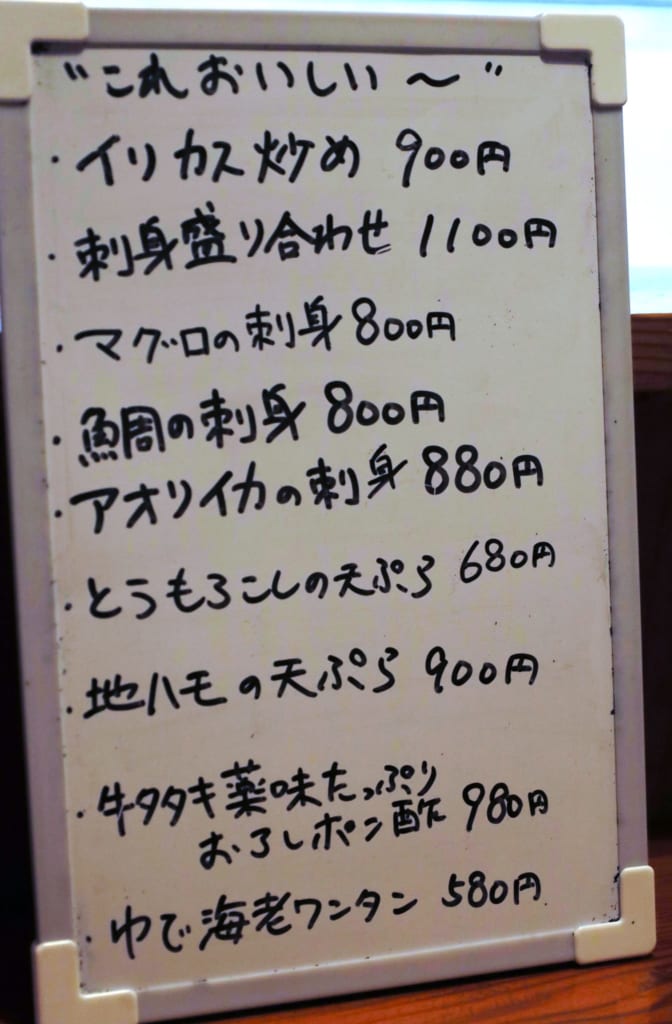 "これおいしい～"
・イリカス炒め 900円
・刺身盛り合わせ 1100円
・マグロの刺身 800円
・鯛の刺身 800円
・アオリイカの刺身 880円
・とうもろこしの天ぷら 680円
・地ハモの天ぷら 900円
・牛タタキ薬味たっぷり
おろしポン酢 980円
・ゆで海老ワンタン 580円